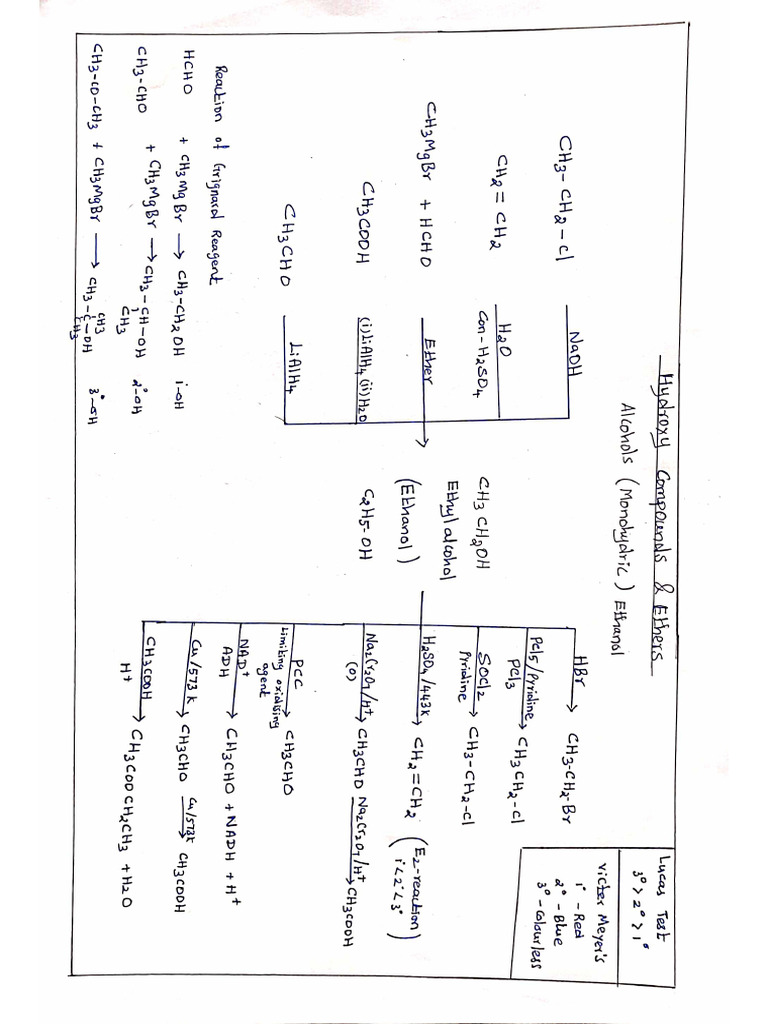 Hydroxy Compounds & Ethers
Alcohols (Monohydric) Ethanol
Lucas Test
3° > 2° > 1°
Victer Meyer's
1° - Red
2° - Blue
3° - Colourless
CH3-CH2-Cl
NaOH
CH2=CH2
H2O
Con-H2SO4
CH3MgBr + HCHO
Ether
CH3COOH
(i) LiAlH4 (ii) H2O
CH3CHO
LiAlH4
CH3CH2OH
Ethyl alcohol
(Ethanol)
C2H5-OH
HBr → CH3-CH2-Br
PCl5/Pyridine → CH3CH2-Cl
PCl3
SOCl2 → CH3-CH2-Cl
Pyridine
H2SO4/443K → CH2=CH2 (E2-reaction)
1°<2°<3°
Na2Cr2O7/H+ → CH3CHO Na2Cr2O7/H+ → CH3COOH
(O)
PCC → CH3CHO
Limiting oxidising
agent
NAD+ → CH3CHO + NADH + H+
ADH
Cu/573K → CH3CHO Cu/573K → CH3COOH
CH3COOH → CH3COOCH2CH3 + H2O
H+
Reaction of Grignard Reagent
HCHO + CH3MgBr → CH3-CH2OH 1-OH
CH3-CHO + CH3MgBr → CH3-CH-OH 2°-OH
CH3
CH3-CO-CH3 + CH3MgBr → CH3-C-OH 3°-OH
CH3
CH3